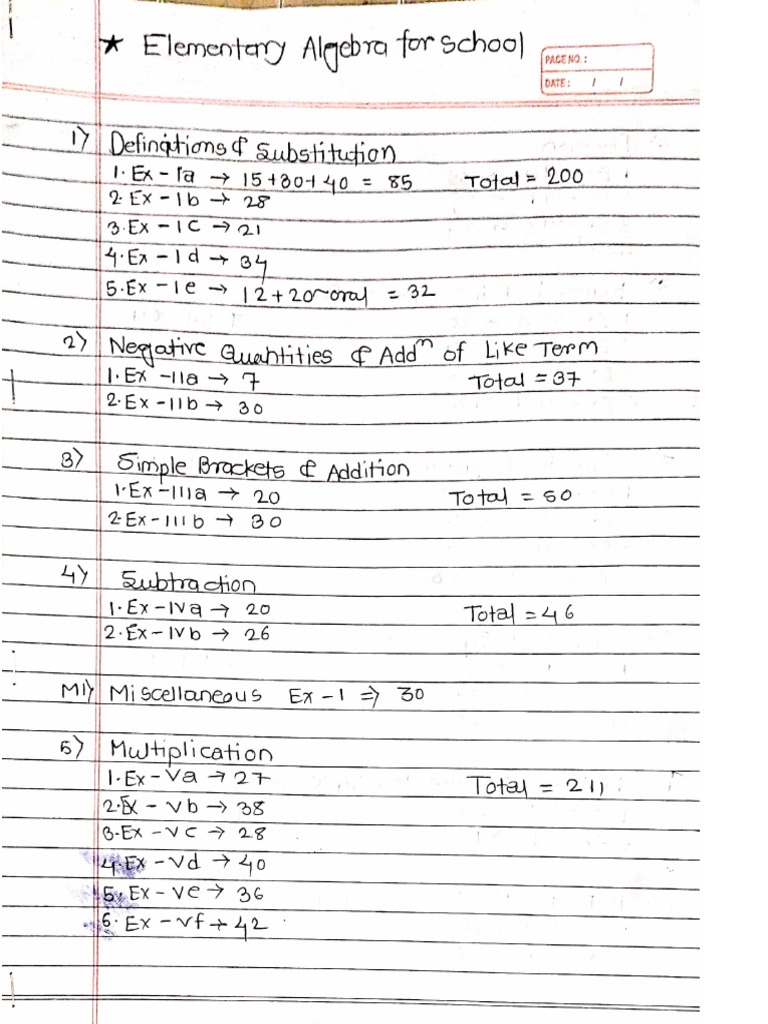 * Elementary Algebra for School
PAGE NO.:
DATE: / /
1) Definations & Substitution
1. Ex - 1a → 15+30+40 = 85 Total = 200
2. Ex - 1b → 28
3. Ex - 1C → 21
4. Ex - 1d → 34
5. Ex - 1e → 12+20~oral = 32
2) Negative Quantities & Addⁿ of Like Term
1. Ex - 11a → 7 Total = 37
2. Ex - 11b → 30
3) Simple Brackets & Addition
1. Ex - 111a → 20 Total = 50
2. Ex - 111b → 30
4) Subtraction
1. Ex - IVa → 20 Total = 46
2. Ex - IVb → 26
M1) Miscellaneous Ex - 1 ⇒ 30
5) Multiplication
1. Ex - Va → 27 Total = 211
2. Ex - Vb → 38
3. Ex - VC → 28
4. Ex - Vd → 40
5. Ex - Ve → 36
6. Ex - Vf → 42